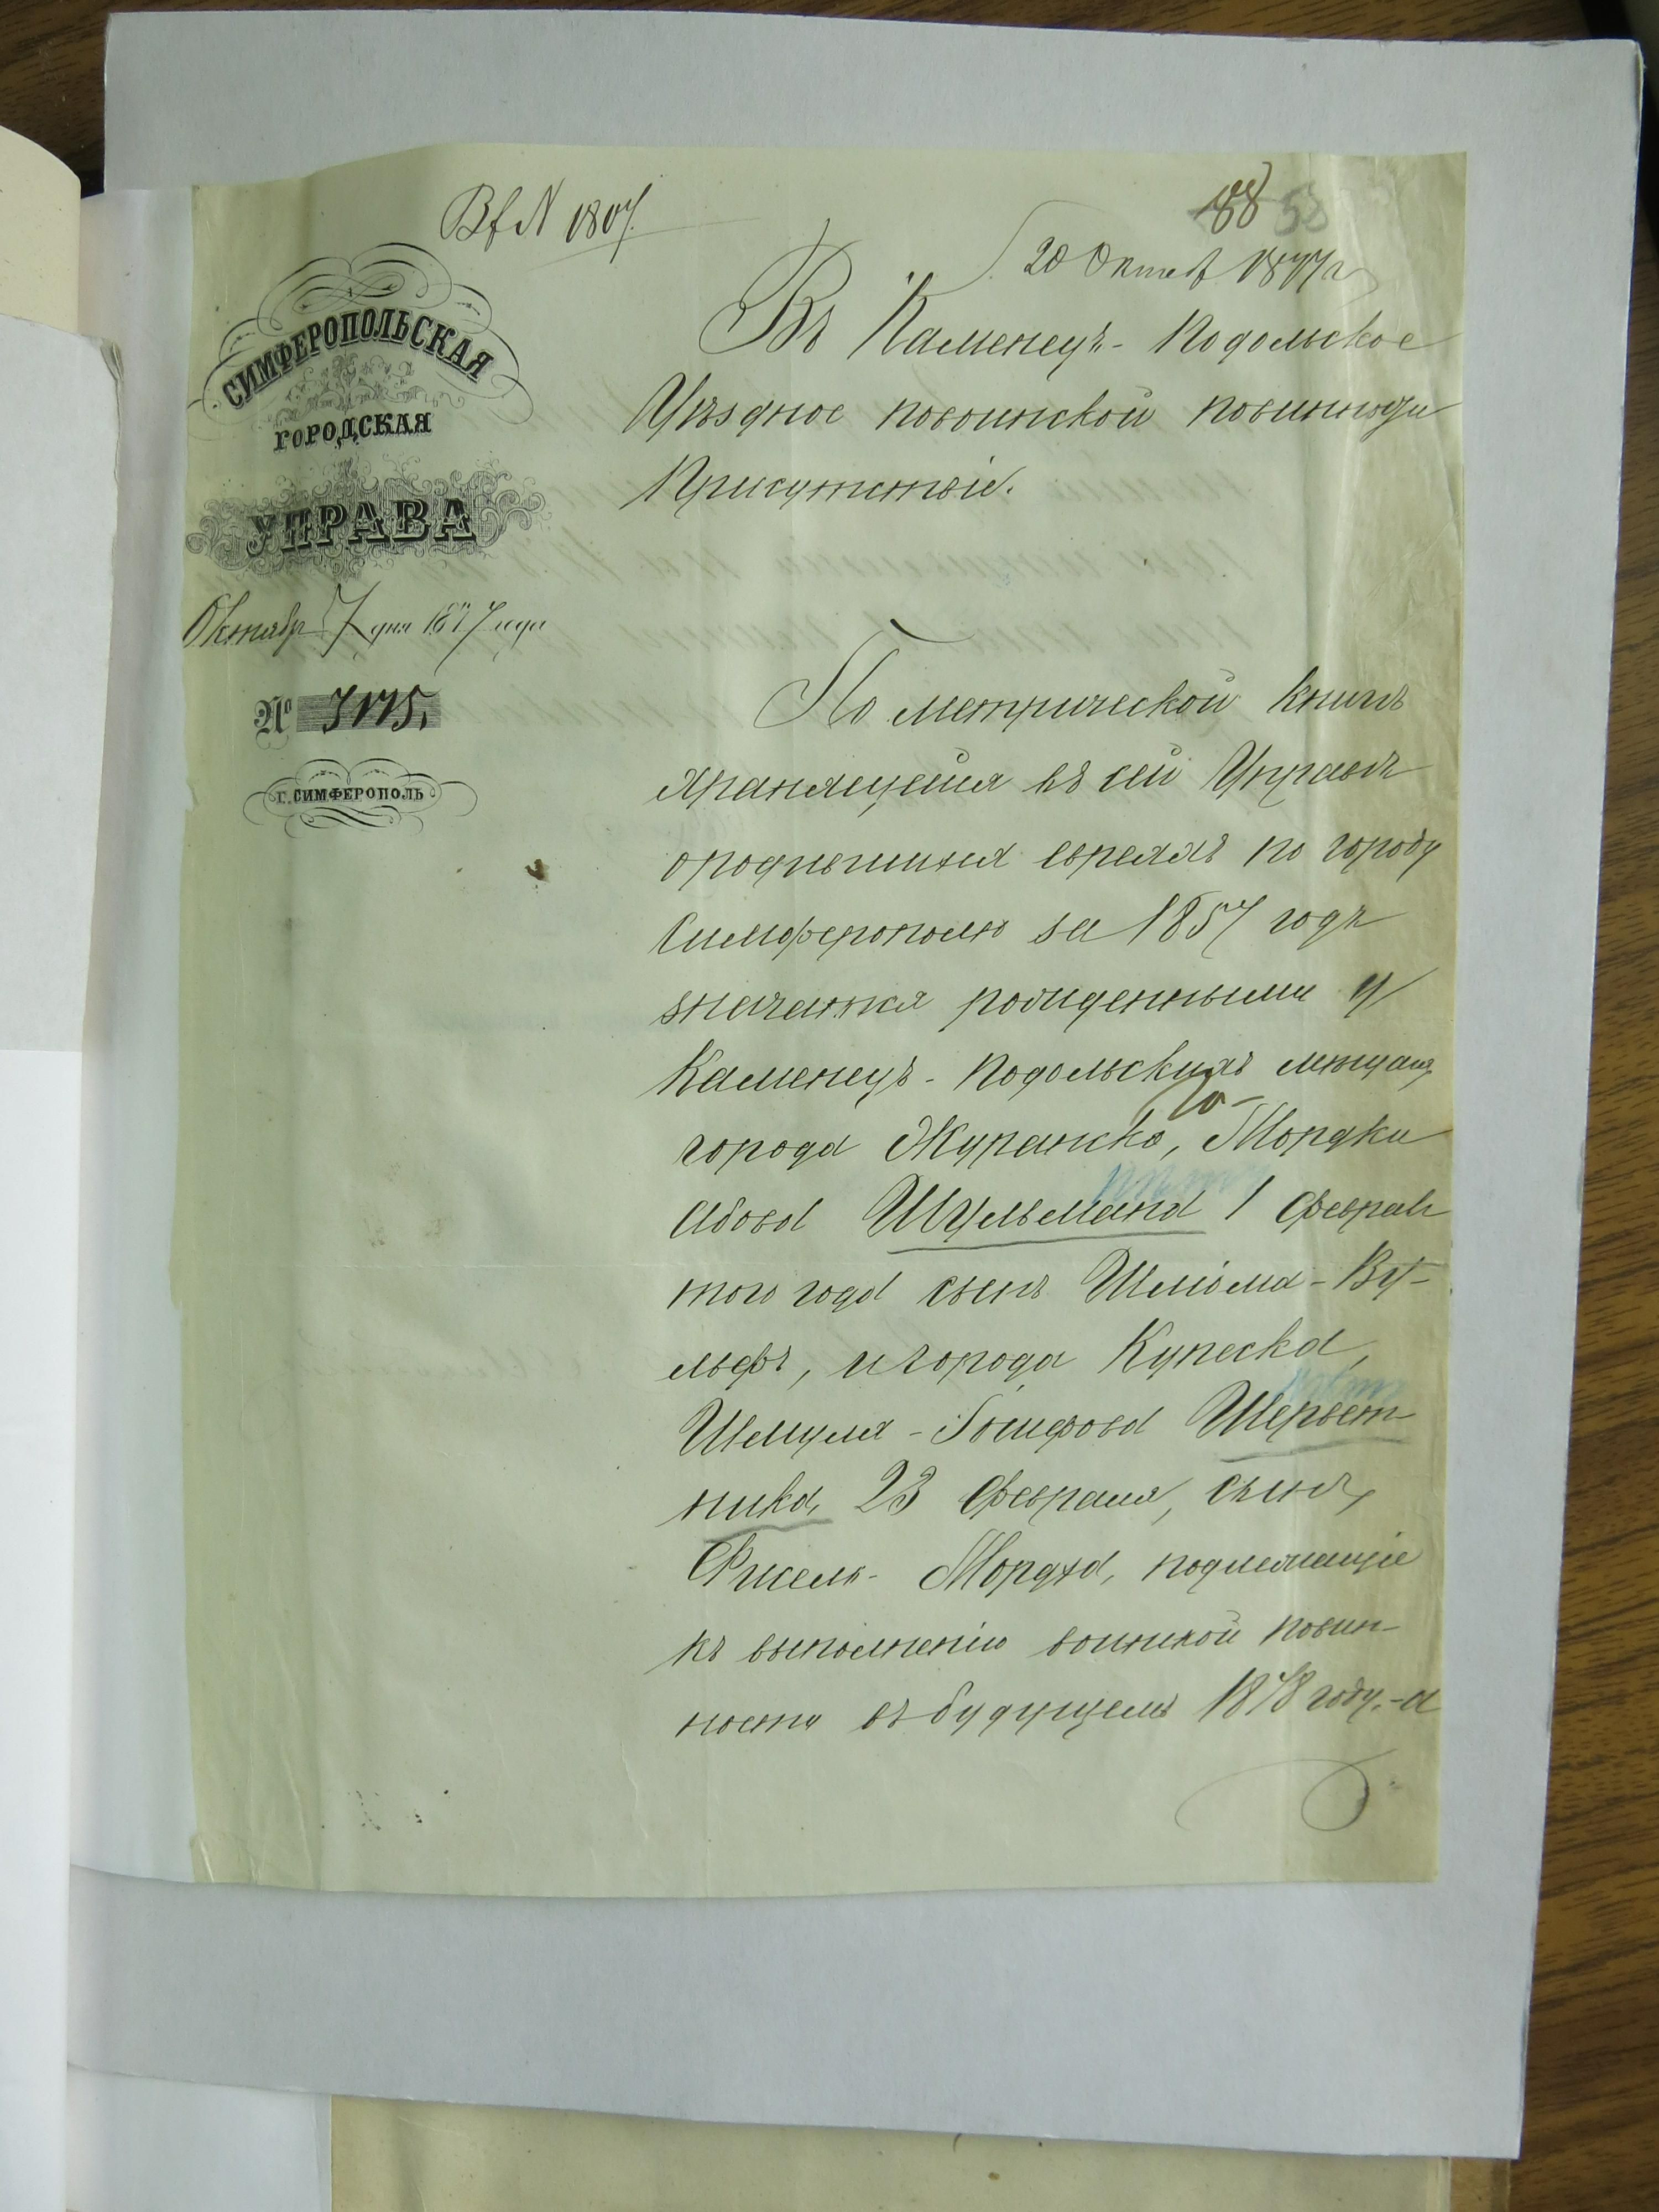 Вх N 1807.
188 53
20 Октяб 1877 г
СИМФЕРОПОЛЬСКАЯ
ГОРОДСКАЯ
УПРАВА
Октябр 7 дня 1877 года
№ 3175.
Г. СИМФЕРОПОЛЬ
Въ Каменецъ-Подольское
Уѣздное повоинской повинности
Присутствіе.
По метрической книгѣ
хранящейся въ сей Управѣ
ородившихся евреяхъ по городу
Симферополю за 1857 годъ
значатся рожденными у
Каменецъ-Подольскихъ мѣщанъ
города Жванско, Мордки
Абова Шульмана 1 Феврал
того года сынъ Шліома-Ву-
льфъ, и города Купеска,
Шмуля-Іосифова Шервет-
ника, 23 Февраля, сынъ,
Фисель-Мордха, подлежащіе
къ выполненію воинской повин-
ности въ будущемъ 1878 году.-а